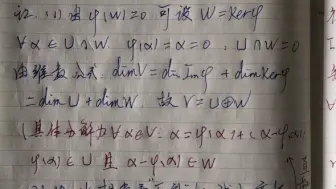 证. (1) 由 φ(W)=0 可设 W=Kerφ
∀α∈U∩W. φ(α)=α=0 . U∩W=0
由维数公式. dimV=dim Imφ + dim Kerφ
=dim U + dim W. 故 V=U⊕W
(具体分解为 ∀α∈V. α=φ(α)+(α-φ(α))
φ(α)∈U 且 α-φ(α)∈W